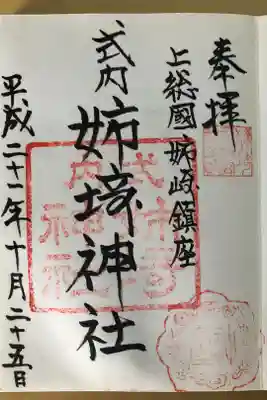 奉拝
上総國姉崎鎮座
式内
姉埼神社
平成二十一年十月二十五日